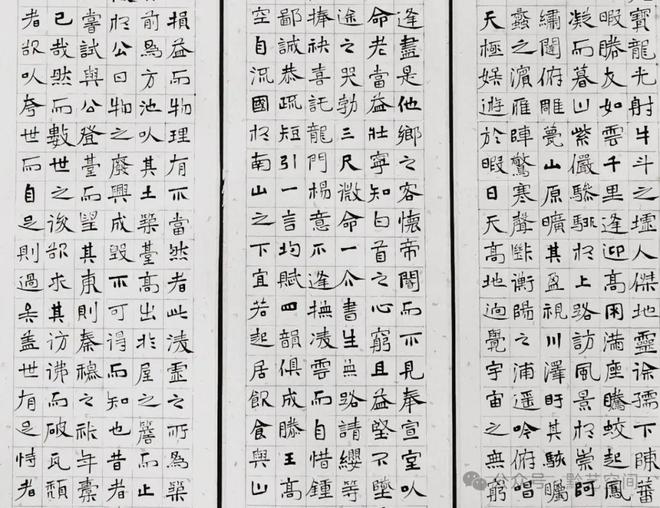 寶龍光射牛斗之墟人傑地靈徐孺下陳蕃
暇勝友如雲千里逢迎高朋滿座騰蛟起鳳
凝而暮山紫儼驂騑於上路訪風景於崇阿
繡闥俯雕甍山原曠其盈視川澤盱其駭矚
蠡之濱雁陣驚寒聲斷衡陽之浦遙吟俯唱
天極娛遊於暇日天高地迥覺宇宙之無窮
逢盡是他鄉之客懷帝閽而不見奉宣室以
命老當益壯寧知白首之心窮且益堅不墜
途之哭勃三尺微命一介書生無路請纓等
捧袂喜託龍門楊意不逢撫凌雲而自惜鍾
鄙誠恭疏短引一言均賦四韻俱成滕王高
空自流國於南山之下宜若起居飲食與山
損益而物理有不當然者此凌虛之所為築
前為方池以其土築臺高出於屋之簷而止
於公曰物之廢興成毀不可得而知也昔者
嘗試與公登臺而望其東則秦穆之祈年橐
已哉然而數世之後欲求其彷彿而破瓦頹
者欲以夸世而自足則過矣蓋世有足恃者
公众号 · 黔艺空间